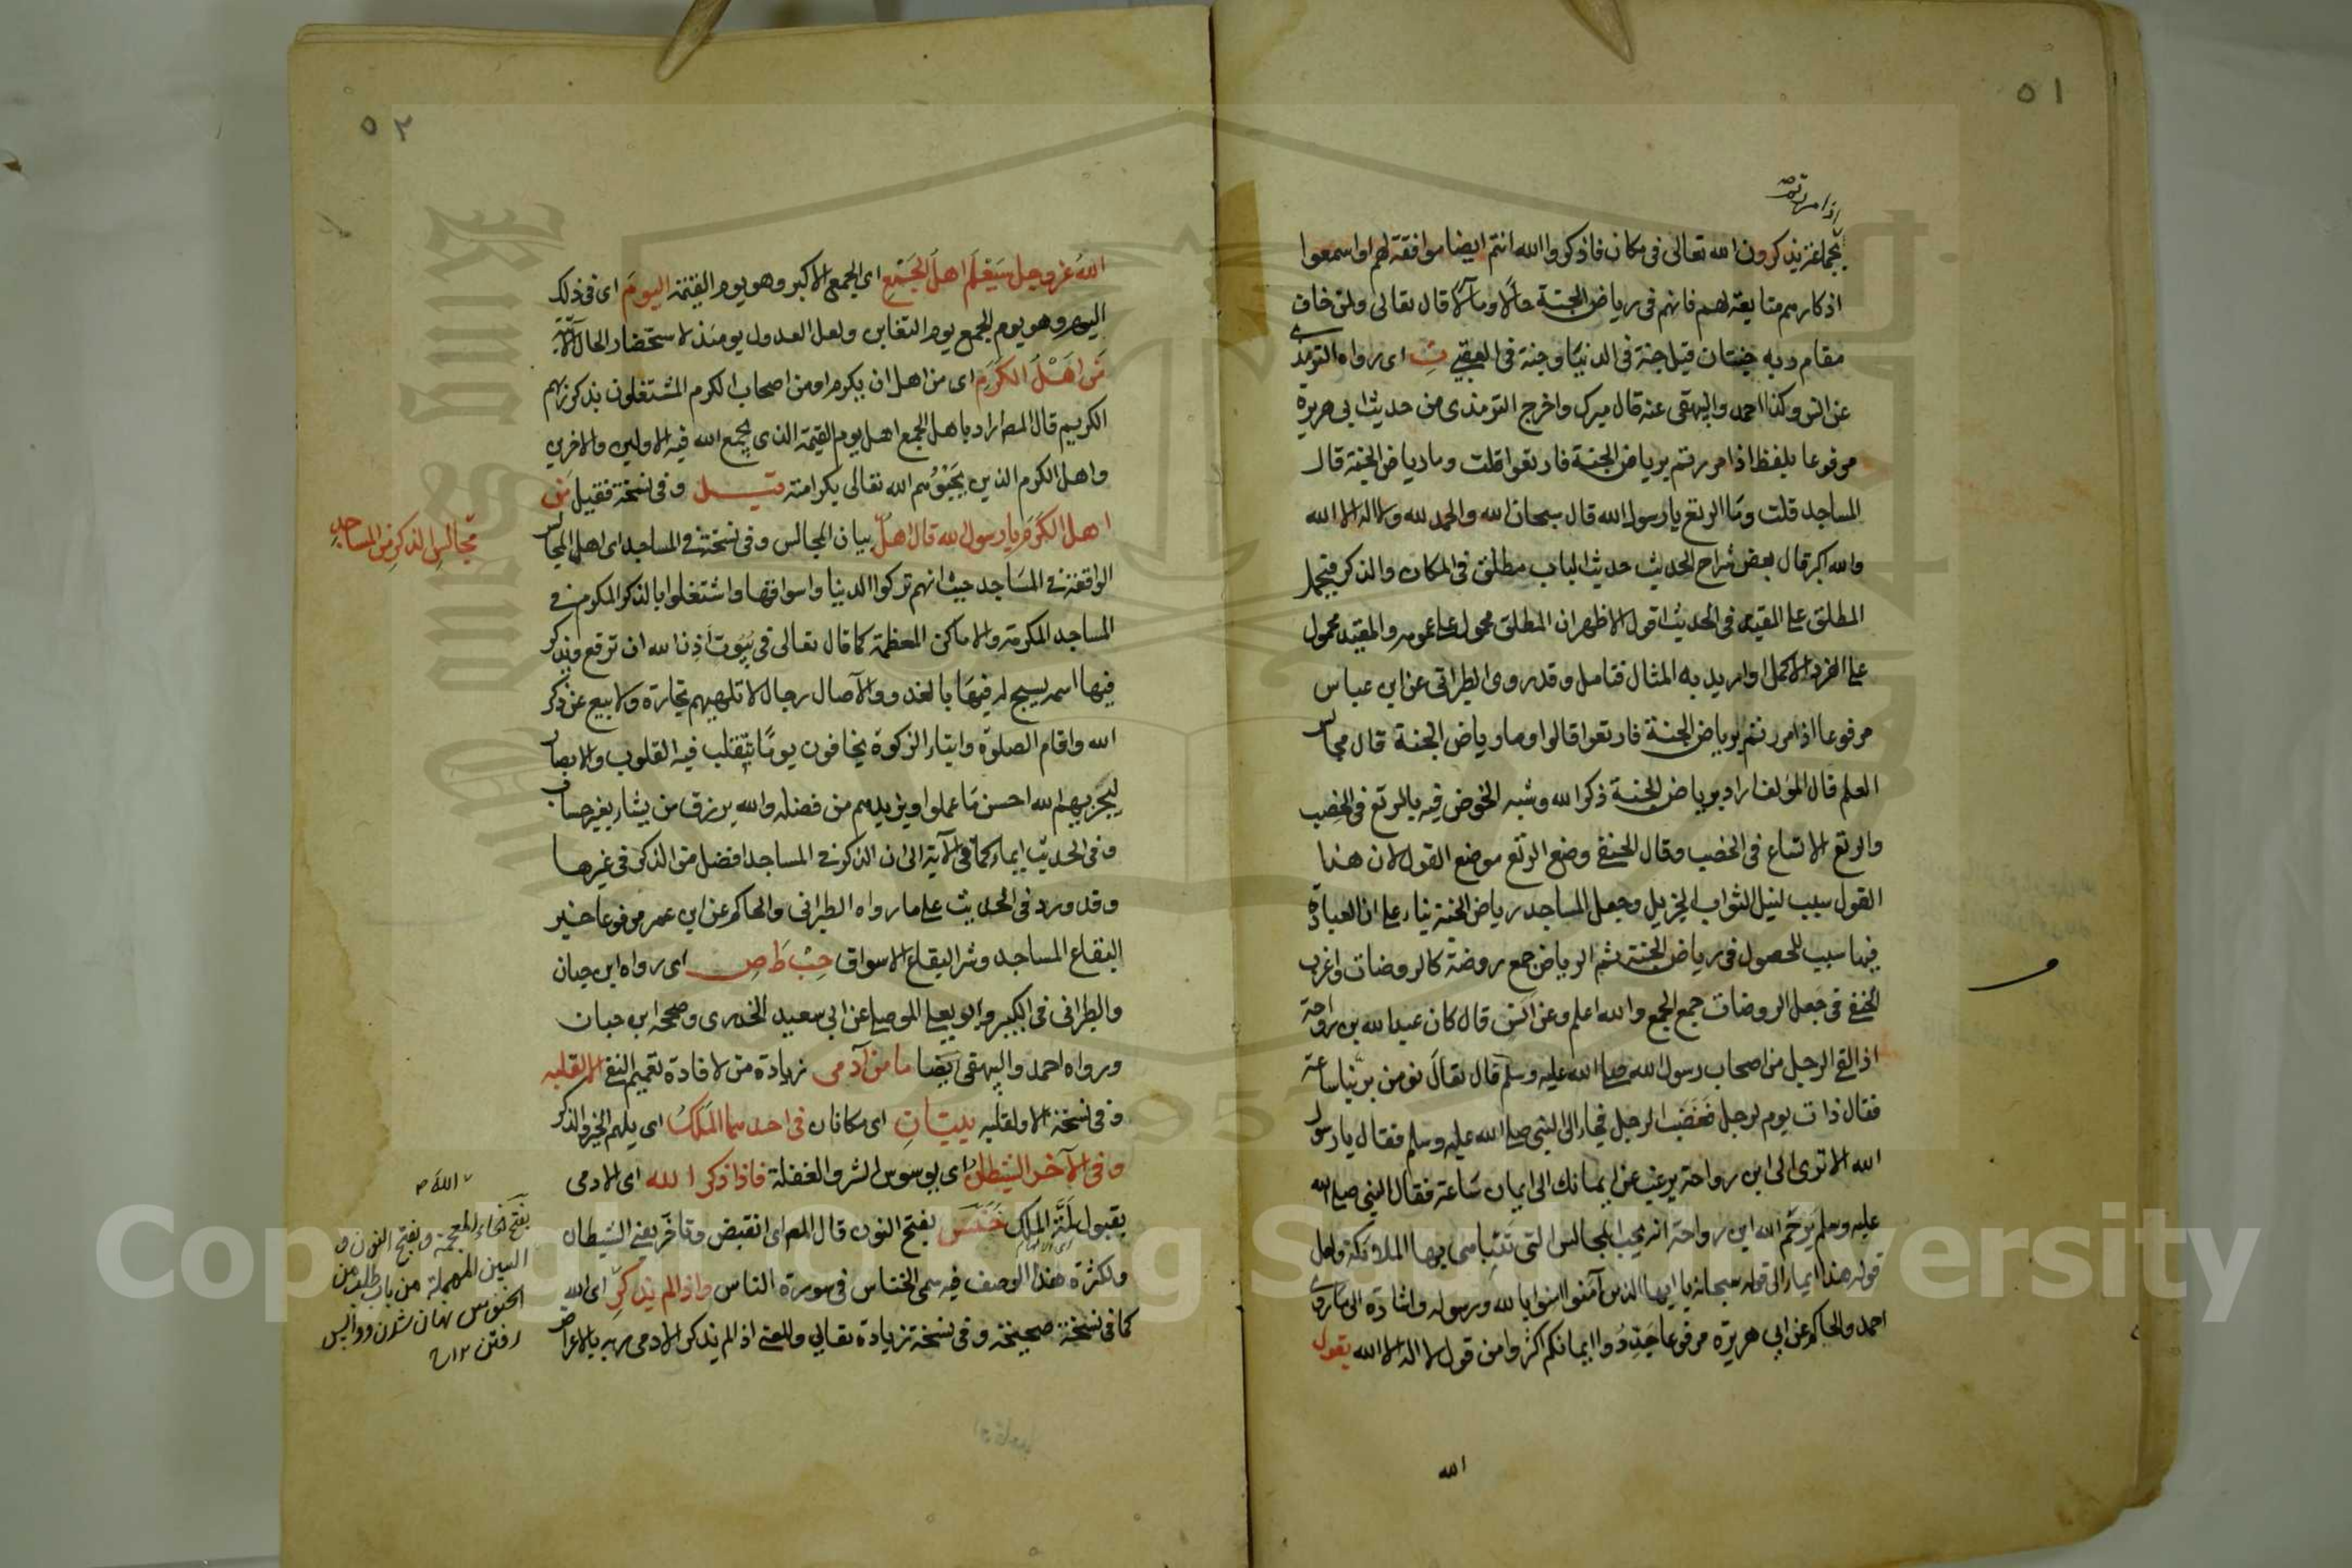 ٥١
اذا مررتم
بجماعة يذكرون الله تعالى فى مكان فاذكروا الله انتم ايضا موافقة لهم او اسمعوا
اذكارهم متابعة لهم فانهم فى رياض الجنة حالا ومآلا قال تعالى ولمن خاف
مقام ربه جنتان قيل جنة فى الدنيا وجنة فى العقبى ت اى رواه الترمذى
عن انس وكذا احمد والبيهقى عنه قال ميرك واخرج الترمذى من حديث ابى هريرة
مرفوعا بلفظ اذا مررتم برياض الجنة فارتعوا قلت وما رياض الجنة قال
المساجد قلت وما الرتع يا رسول الله قال سبحان الله والحمد لله ولا اله الا الله
والله اكبر قال بعض شراح الحديث حديث الباب مطلق فى المكان والذكر فيحمل
المطلق على المقيد فى الحديث اقول الاظهر ان المطلق محمول على عمومه والمقيد محمول
على الفرد الاكمل او اريد به المثال فتامل وقد روى الطبرانى عن ابن عباس
مرفوعا اذا مررتم برياض الجنة فارتعوا قالوا وما رياض الجنة قال مجالس
العلم قال المؤلف اراد برياض الجنة ذكر الله وشبه الخوض فيه بالرتع فى الخصب
والرتع الاتساع فى الخصب وقال الحنفى وضع الرتع موضع القول لان هذا
القول سبب لنيل الثواب الجزيل وجعل المساجد رياض الجنة بناء على ان العبادة
فيها سبب للحصول فى رياض الجنة ثم الرياض جمع روضة كالروضات واغرب
الحنفى فى جعل الروضات جمع الجمع والله اعلم وعن انس قال كان عبد الله بن رواحة
اذا لقى الرجل من اصحاب رسول الله صلى الله عليه وسلم قال تعال نومن بربنا ساعة
فقال ذات يوم لرجل فغضب الرجل فجاء الى النبى صلى الله عليه وسلم فقال يا رسول
الله الا ترى الى ابن رواحة يرغب عن ايمانك الى ايمان ساعة فقال النبى صلى الله
عليه وسلم يرحم الله ابن رواحة انه يحب المجالس التى تتباهى بها الملائكة ولعل
قوله هذا ايماء الى قوله سبحانه يا ايها الذين آمنوا امنوا بالله ورسوله واشارة الى ما روى
احمد والحاكم عن ابى هريرة مرفوعا جددوا ايمانكم اكثروا من قول لا اله الا الله يقول
الله
٥٢
الله عز وجل سيعلم اهل الجمع اى الجمع الاكبر وهو يوم القيمة اليوم اى فى ذلك
اليوم وهو يوم الجمع يوم التغابن ولعل العدول يومئذ لاستحضار الحال الآتية
من اهل الكرم اى من اهل ان يكرم او من اصحاب الكرم المشتغلون بذكر ربهم
الكريم قال المص اراد باهل الجمع اهل يوم القيمة الذى يجمع الله فيه الاولين والاخرين
واهل الكرم الذين يحبوهم الله تعالى بكرامته قيل وفى نسخة فقيل من
اهل الكرم يا رسول الله قال اهل بيان المجالس وفى نسخة فى المساجد اى اهل المجالس
مجالس الذكر من المساجد
الواقعة فى المساجد حيث انهم تركوا الدنيا واسواقها واشتغلوا بالذكر المكرم فى
المساجد المكرمة والاماكن المعظمة كما قال تعالى فى بيوت اذن الله ان ترفع ويذكر
فيها اسمه يسبح له فيها بالغدو والآصال رجال لا تلهيهم تجارة ولا بيع عن ذكر
الله واقام الصلوة وايتاء الزكوة يخافون يوما تتقلب فيه القلوب والابصار
ليجزيهم الله احسن ما عملوا ويزيدهم من فضله والله يرزق من يشاء بغير حساب
وفى الحديث ايماء كما فى الآية الى ان الذكر فى المساجد افضل من الذكر فى غيرها
وقد ورد فى الحديث على ما رواه الطبرانى والحاكم عن ابن عمر مرفوعا خير
البقاع المساجد وشر البقاع الاسواق حب ط ص اى رواه ابن حبان
والطبرانى فى الكبير وابو يعلى الموصلى عن ابى سعيد الخدرى وصححه ابن حبان
ورواه احمد والبيهقى ايضا ما من آدمى زيادة من لافادة تعميم النفى الا لقلبه
وفى نسخة الا ولقلبه بيتان اى مكانان فى احدهما الملك اى يلهم الخير والذكر
وفى الآخر الشيطان اى يوسوس الشر والغفلة فاذا ذكر الله اى الادمى
بقبول لمة الملك خنس بفتح النون قال المص اى انقبض وتاخر يعنى الشيطان
ولكثرة هذا الوصف فيه سمى الخناس فى سورة الناس واذا لم يذكر اى الله
كما فى نسخة صحيحة وفى نسخة زيادة تعالى والمعنى اذا لم يذكر الادمى ربه بالاعراض
الله
بفتح الخاء المعجمة وبفتح النون و
السين المهملة من باب طلب من
الخنوس نهان شدن وواپس
رفتن ١٢
Copyright © King Saud University
King Saud University
1957